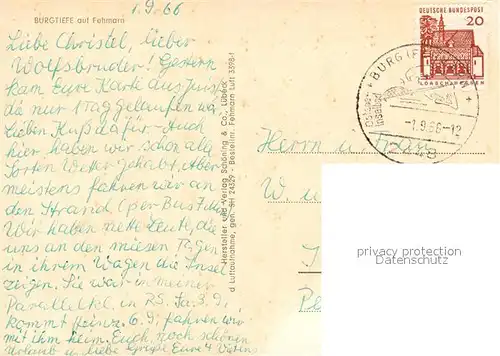 BURGTIEFE auf Fehmarn
1.9.66
Liebe Christel, lieber
Wolfsbruder! Gestern
kam Eure Karte aus
die nur 1 Tag gelaufen war
Lieben Kuß dafür. Auch
hier haben wir schon alle
Sorten Wetter gehabt. Aber
meistens fahren wir an
den Strand (per Bus 7 Min.
Wir haben nette Leute, die
uns an den miesen Tagen
in ihrem Wagen die Insel
zeigen. Sie war in meiner
Parallelkl. in RS. Sa. 3.9.
kommt Heinz. 6.9. fahren wir
mit ihm heim. Euch noch schönen
Urlaub u. liebe Grüße Eure
Hersteller und Verlag Schöning & Co., Lübeck
d Luftaufnahme, gen. SH 24329 - Bestellnr. Fehmarn Luft 3398-f
DEUTSCHE BUNDESPOST
20
LORSCH/HESSEN
BURGTIEFE
Ostsee-
-1.9.66-12
Herrn u. Frau
W. u
privacy protection
Datenschutz